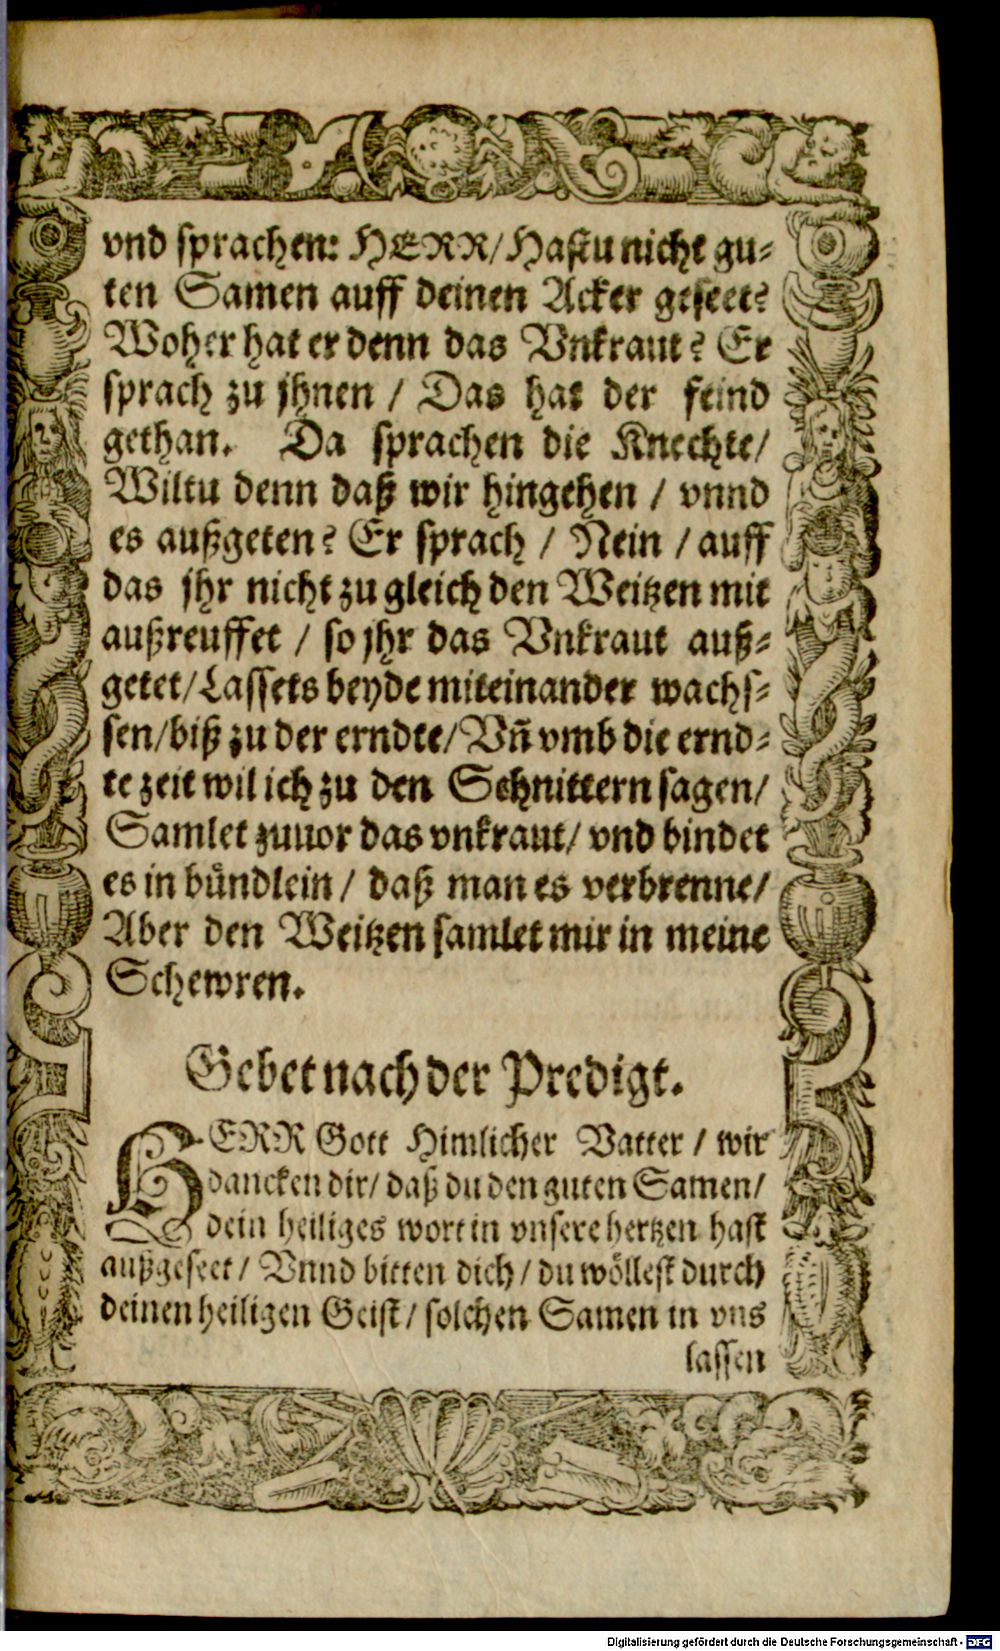 vnd sprachen: HERR/ Hastu nicht gu⸗
ten Samen auff deinen Acker geseet?
Woher hat er denn das Vnkraut? Er
sprach zu jhnen / Das hat der feind
gethan. Da sprachen die Knechte/
Wiltu denn daß wir hingehen / vnnd
es außgeten? Er sprach / Nein / auff
das jhr nicht zu gleich den Weitzen mit
außreuffet / so jhr das Vnkraut auß⸗
getet/ Lassets beyde miteinander wachs⸗
sen/ biß zu der erndte/ Vñ vmb die ernd⸗
te zeit wil ich zu den Schnittern sagen/
Samlet zuuor das vnkraut/ vnd bindet
es in bündlein / daß man es verbrenne/
Aber den Weitzen samlet mir in meine
Schewren.
Gebet nach der Predigt.
HERR Gott Himlicher Vatter / wir
dancken dir/ daß du den guten Samen/
dein heiliges wort in vnsere hertzen hast
außgeseet / Vnnd bitten dich / du wöllest durch
deinen heiligen Geist / solchen Samen in vns
lassen
Digitalisierung gefördert durch die Deutsche Forschungsgemeinschaft - DFG